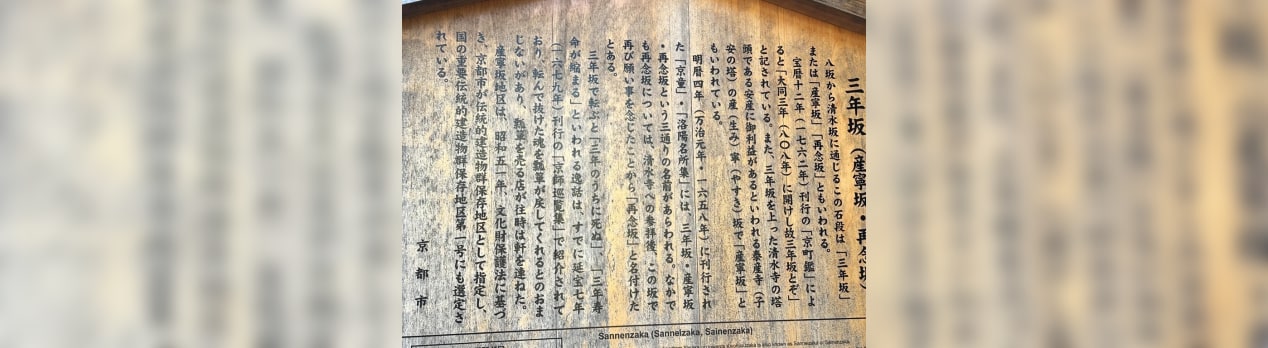 三年坂(産寧坂・再念坂)
八坂から清水坂に通じるこの石段は「三年坂」
または「産寧坂」「再念坂」ともいわれる。
宝暦十二年(一七六二年)刊行の「京町鑑」によ
ると「大同三年(八〇八年)に開けし故三年坂とぞ」
と記されている。また、三年坂を上った清水寺の塔
頭である安産に御利益があるといわれる泰産寺(子
安の塔)の産(生み)寧(やすき)坂で「産寧坂」と
もいわれている。
明暦四年(万治元年・一六五八年)に刊行され
た「京童」・「洛陽名所集」には、三年坂・産寧坂
・再念坂という三通りの名前があらわれる。なかで
も再念坂については、清水寺への参拝後、この坂で
再び願い事を念じたことから「再念坂」と名付けた
とある。
三年坂で転ぶと「三年のうちに死ぬ」、「三年寿
命が縮まる」といわれる逸話は、すでに延宝七年
(一六七九年)刊行の「京師巡覧集」で紹介されて
おり、転んで抜けた魂を瓢箪が戻してくれるとのおま
じないがあり、瓢箪を売る店が往時は軒を連ねた。
産寧坂地区は、昭和五一年、文化財保護法に基づ
き、京都市が伝統的建造物群保存地区として指定し、
国の重要伝統的建造物群保存地区第一号にも選定さ
れている。
京都市
Sannenzaka (Sanneizaka, Sainenzaka)